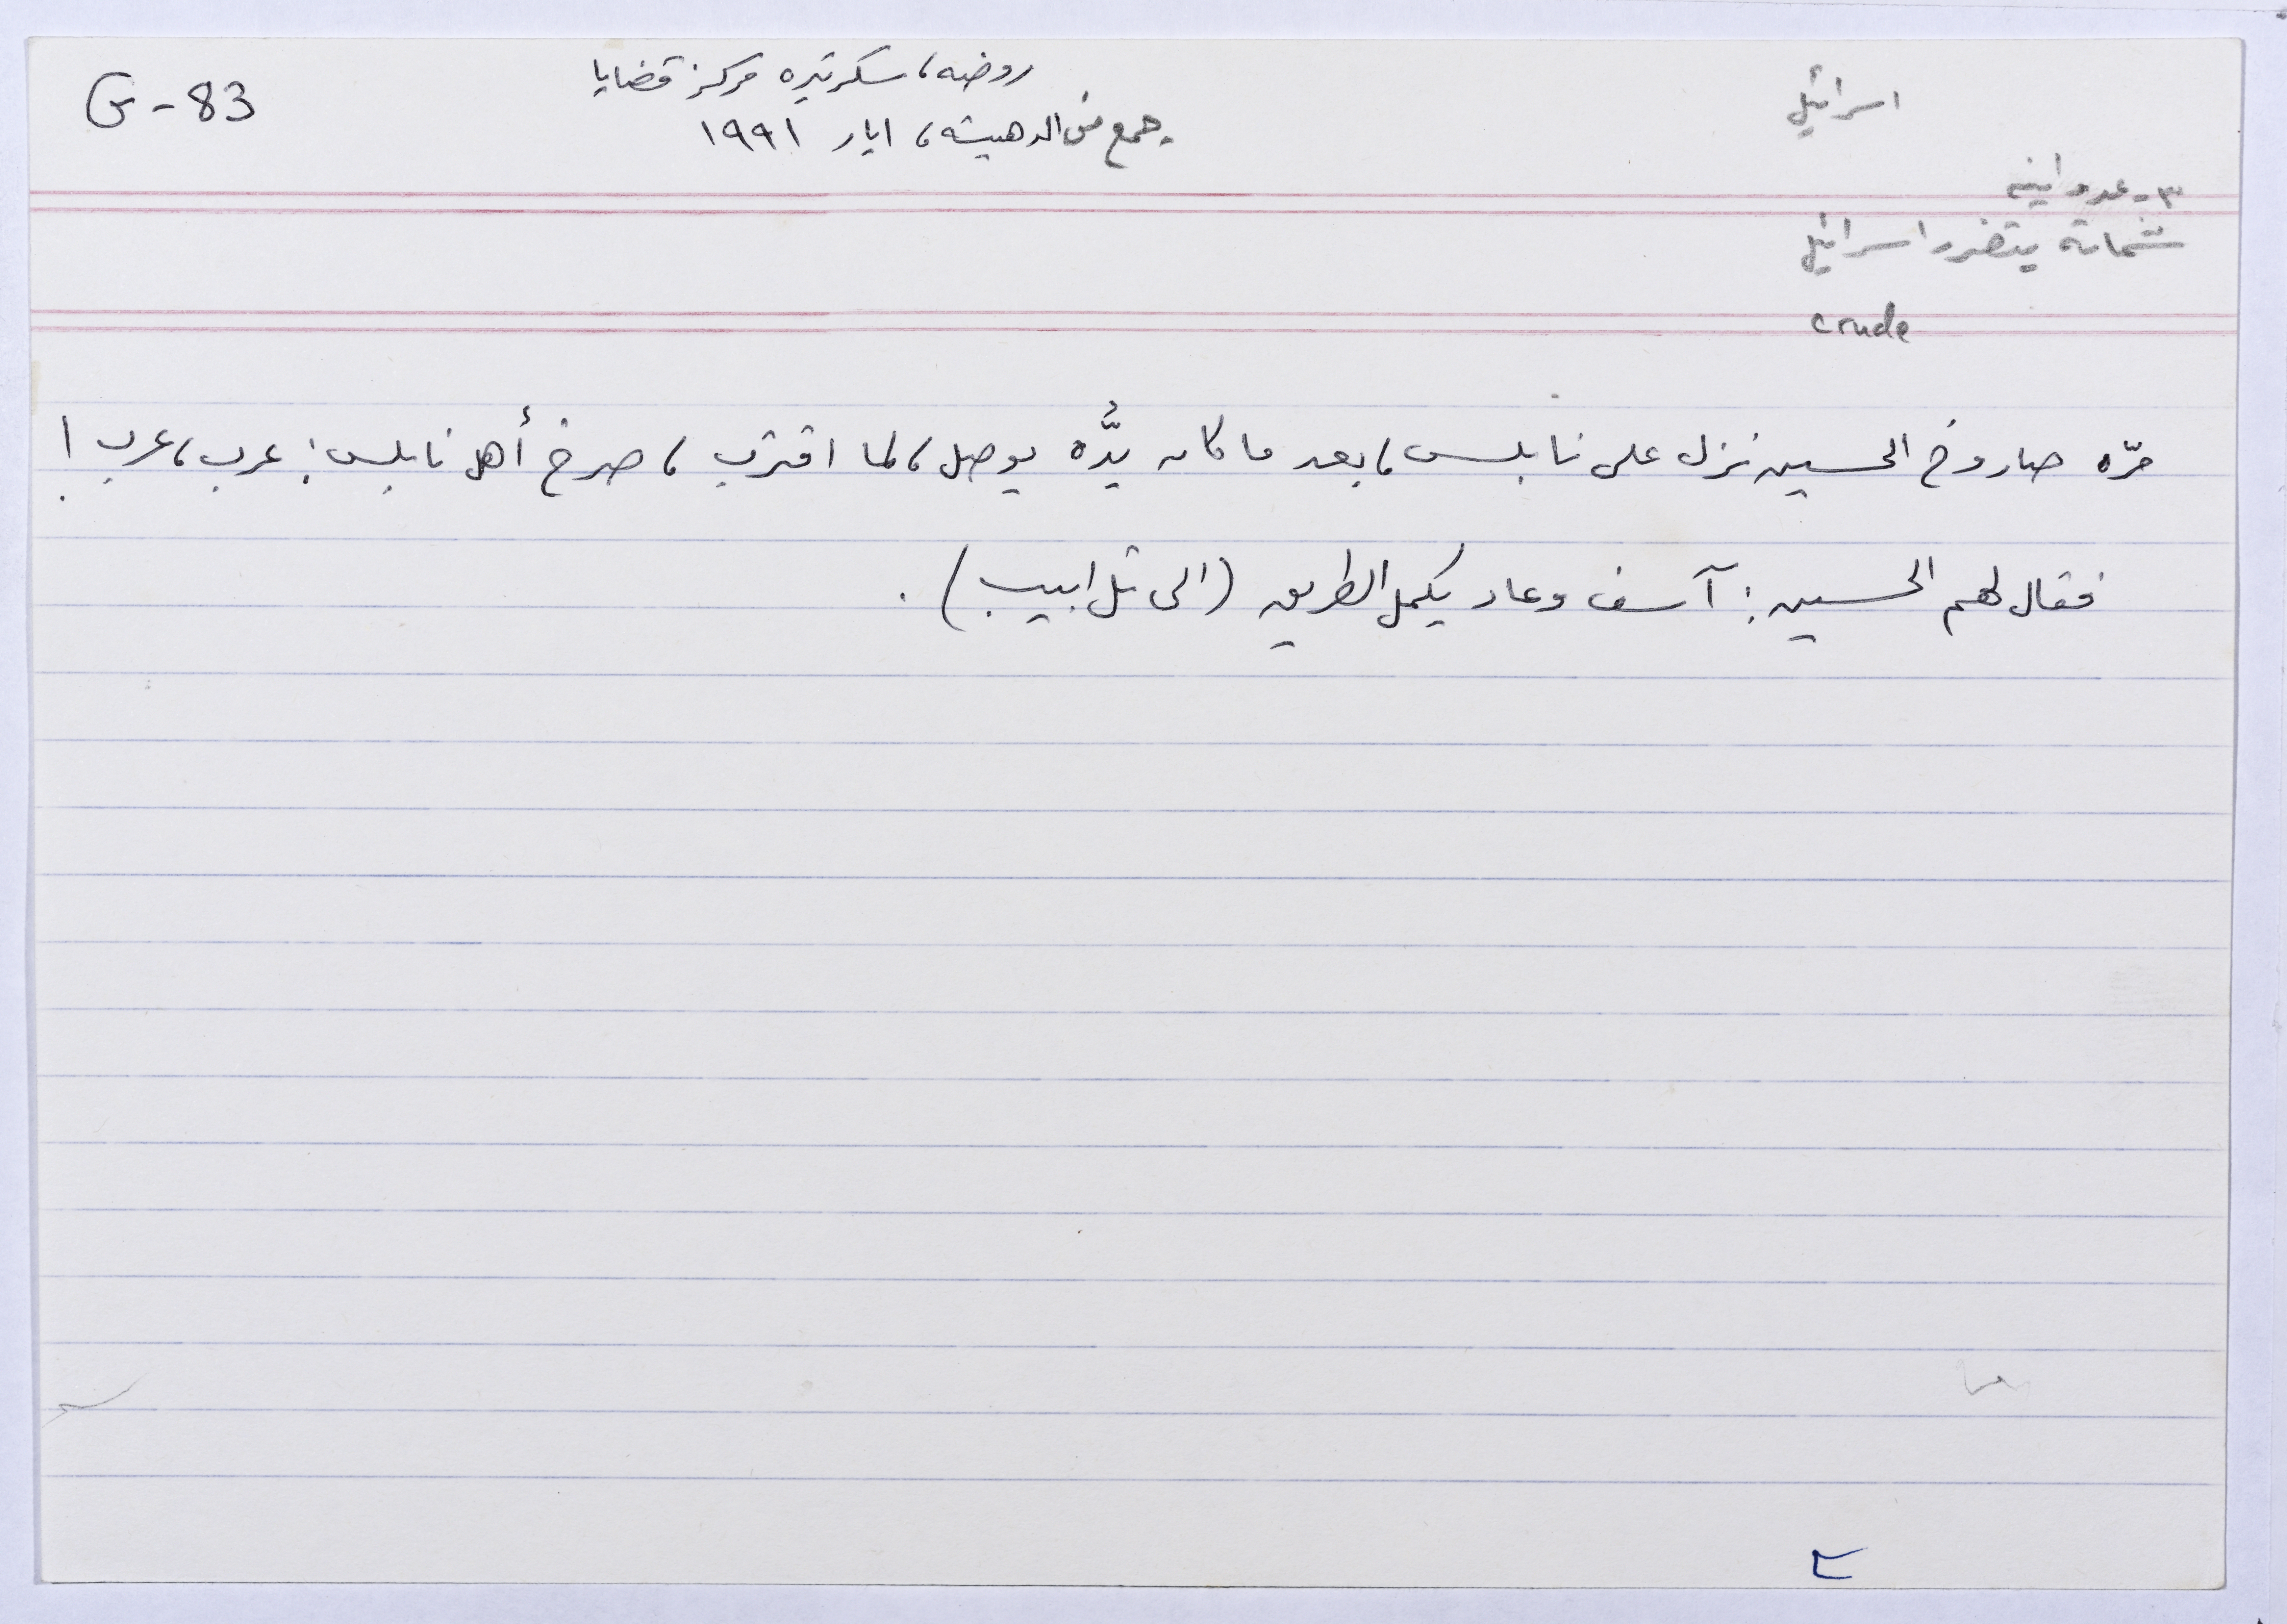 G-83
روضه، سكرتيره مركز قضايا
جمع من الدهيشه، ايار ١٩٩١
اسرائيل
٣- عدوانيه
شماتة بتضرر اسرائيل
crude
مرّه صاروخ الحسين نزل على نابلس، بعد ما كان بدُّه يوصل، لما اقترب، صرخ أهل نابلس: عرب، عرب!
فقال لهم الحسين: آسف وعاد يكمل الطريق (الى تل ابيب).